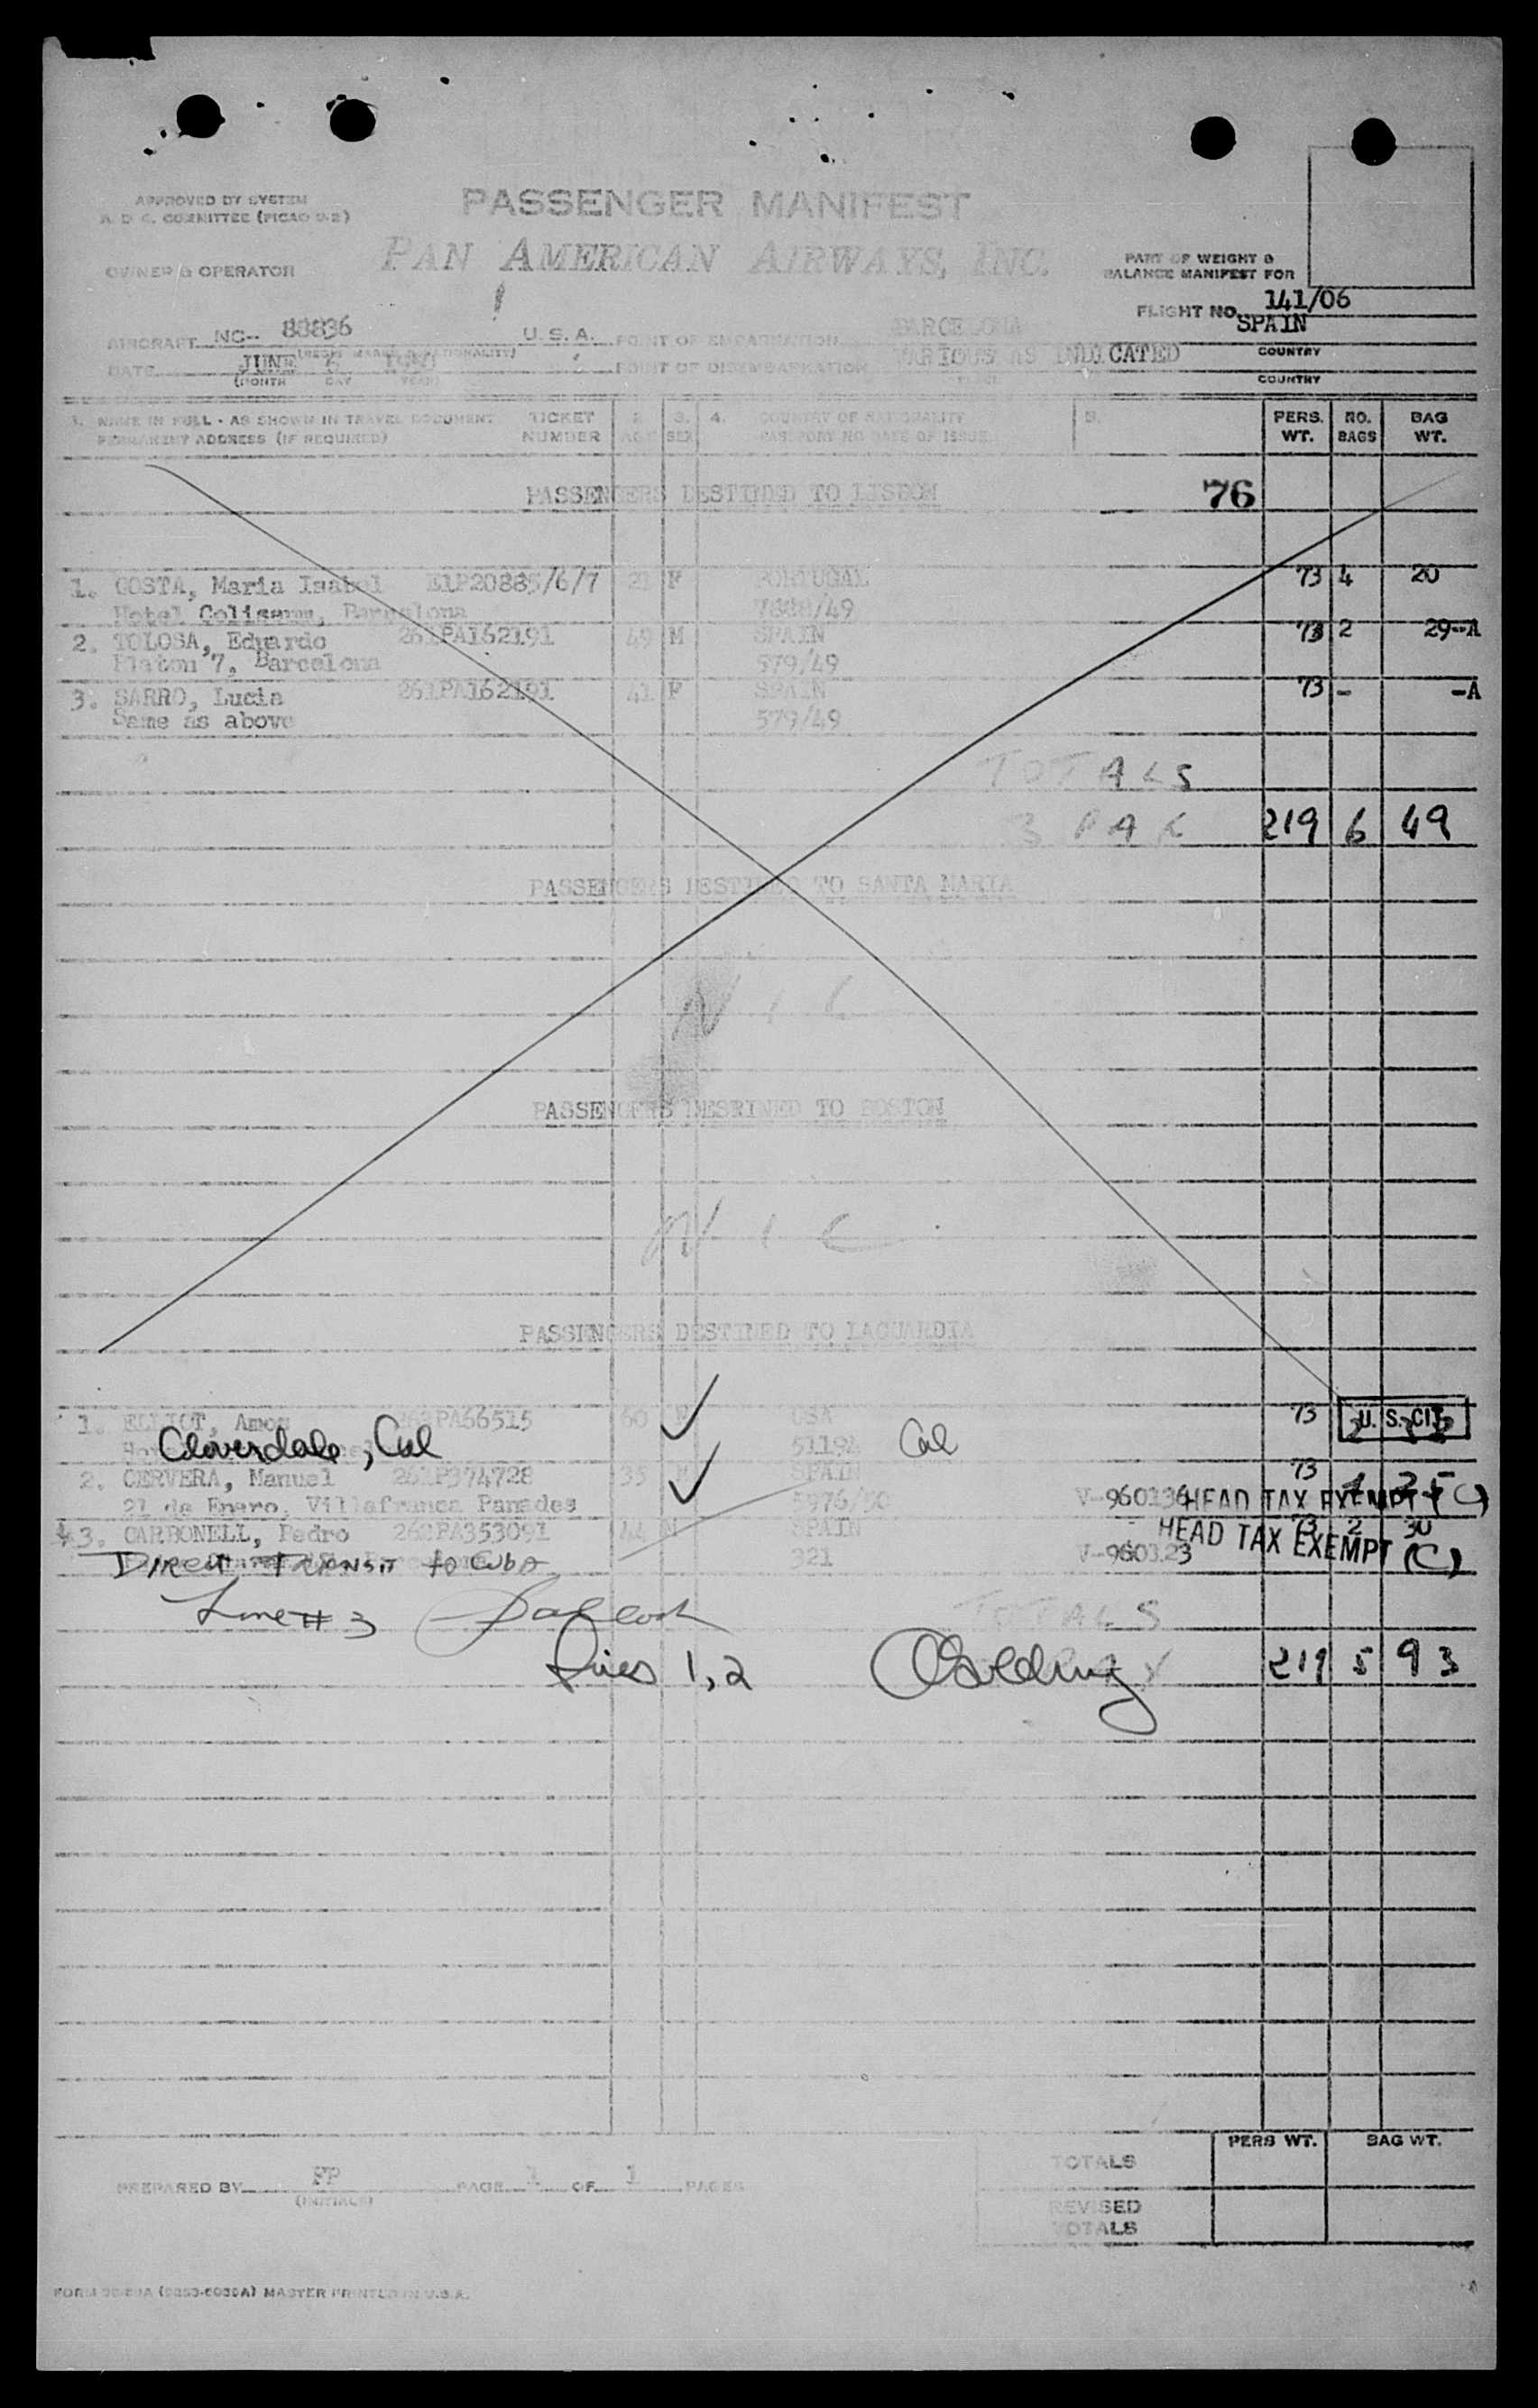 APPROVED BY SYSTEM
A D C. COMMITTEE (PICAO 9-2)
PASSENGER MANIFEST
PAN AMERICAN AIRWAYS, INC.
OWNER & OPERATOR
PART OF WEIGHT &
BALANCE MANIFEST FOR
FLIGHT NO. 141/06
AIRCRAFT NC-- 88836 U. S. A. POINT OF EMBARKATION BARCELONA SPAIN
COUNTRY
DATE JUNE 6 POINT OF DISEMBARKATION VARIOUS AS INDICATED
(MONTH DAY YEAR) PLACE COUNTRY
1. NAME IN FULL - AS SHOWN IN TRAVEL DOCUMENT TICKET 2. 3. 4. COUNTRY OF NATIONALITY 5. PERS. NO. BAG
PERMANENT ADDRESS (IF REQUIRED) NUMBER AGE SEX PASSPORT NO DATE OF ISSUE WT. BAGS WT.
PASSENGERS DESTINED TO LISBON 76
1. COSTA, Maria Isabel E1P20885/6/7 21 F PORTUGAL 73 4 20
Hotel Coliseum, Barcelona 7888/49
2. TOLOSA, Eduardo 261PA162191 49 M SPAIN 73 2 29--A
Platon 7, Barcelona 579/49
3. SARRO, Lucia 261PA162191 41 F SPAIN 73 - -A
Same as above 579/49
TOTALS
3 PAX 219 6 49
PASSENGERS DESTINED TO SANTA MARIA
NIL
PASSENGERS DESRINED TO BOSTON
NIL
PASSENGERS DESTINED TO LAGUARDIA
1. ELLIOT, Amos 261PA66515 60 M USA 73 U. S. CIT.
Cloverdale, Cal 51194 Cal
2. CERVERA, Manuel 261P374728 35 M SPAIN 73 1 25
21 de Enero, Villafranca Panades 5976/50 V-960136 HEAD TAX EXEMPT (C)
3. CARBONELL, Pedro 261PA353091 44 M SPAIN 73 2 30
Direct Transit to Cuba 321 V-960123 HEAD TAX EXEMPT (C)
Line # 3 TOTALS
Lines 1, 2 219 5 93
PERS WT. BAG WT.
TOTALS
PREPARED BY FP PAGE 1 OF 1 PAGES
(INITIALS)
REVISED
TOTALS
MASTER PRINTED IN U.S.A.